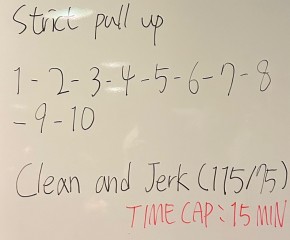 Strict pull up
1-2-3-4-5-6-7-8
-9-10
Clean and Jerk (115/75)
TIME CAP: 15 MIN